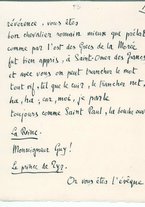 révérence, vous êtes
bon chevalier romain mieux que
comme par l'est des Grecs de la Morée
fut bien appris, à Saint-Omer des
et avec vous on peut trancher le mot
tout nif, tel que le cuir, trancher net,
ha, ha; car moi, je parle
toujours comme Saint Paul, la bouche
La Reine.
Monseigneur Guy!
Le prince de Tyr.
Où vous êtes l'évêque